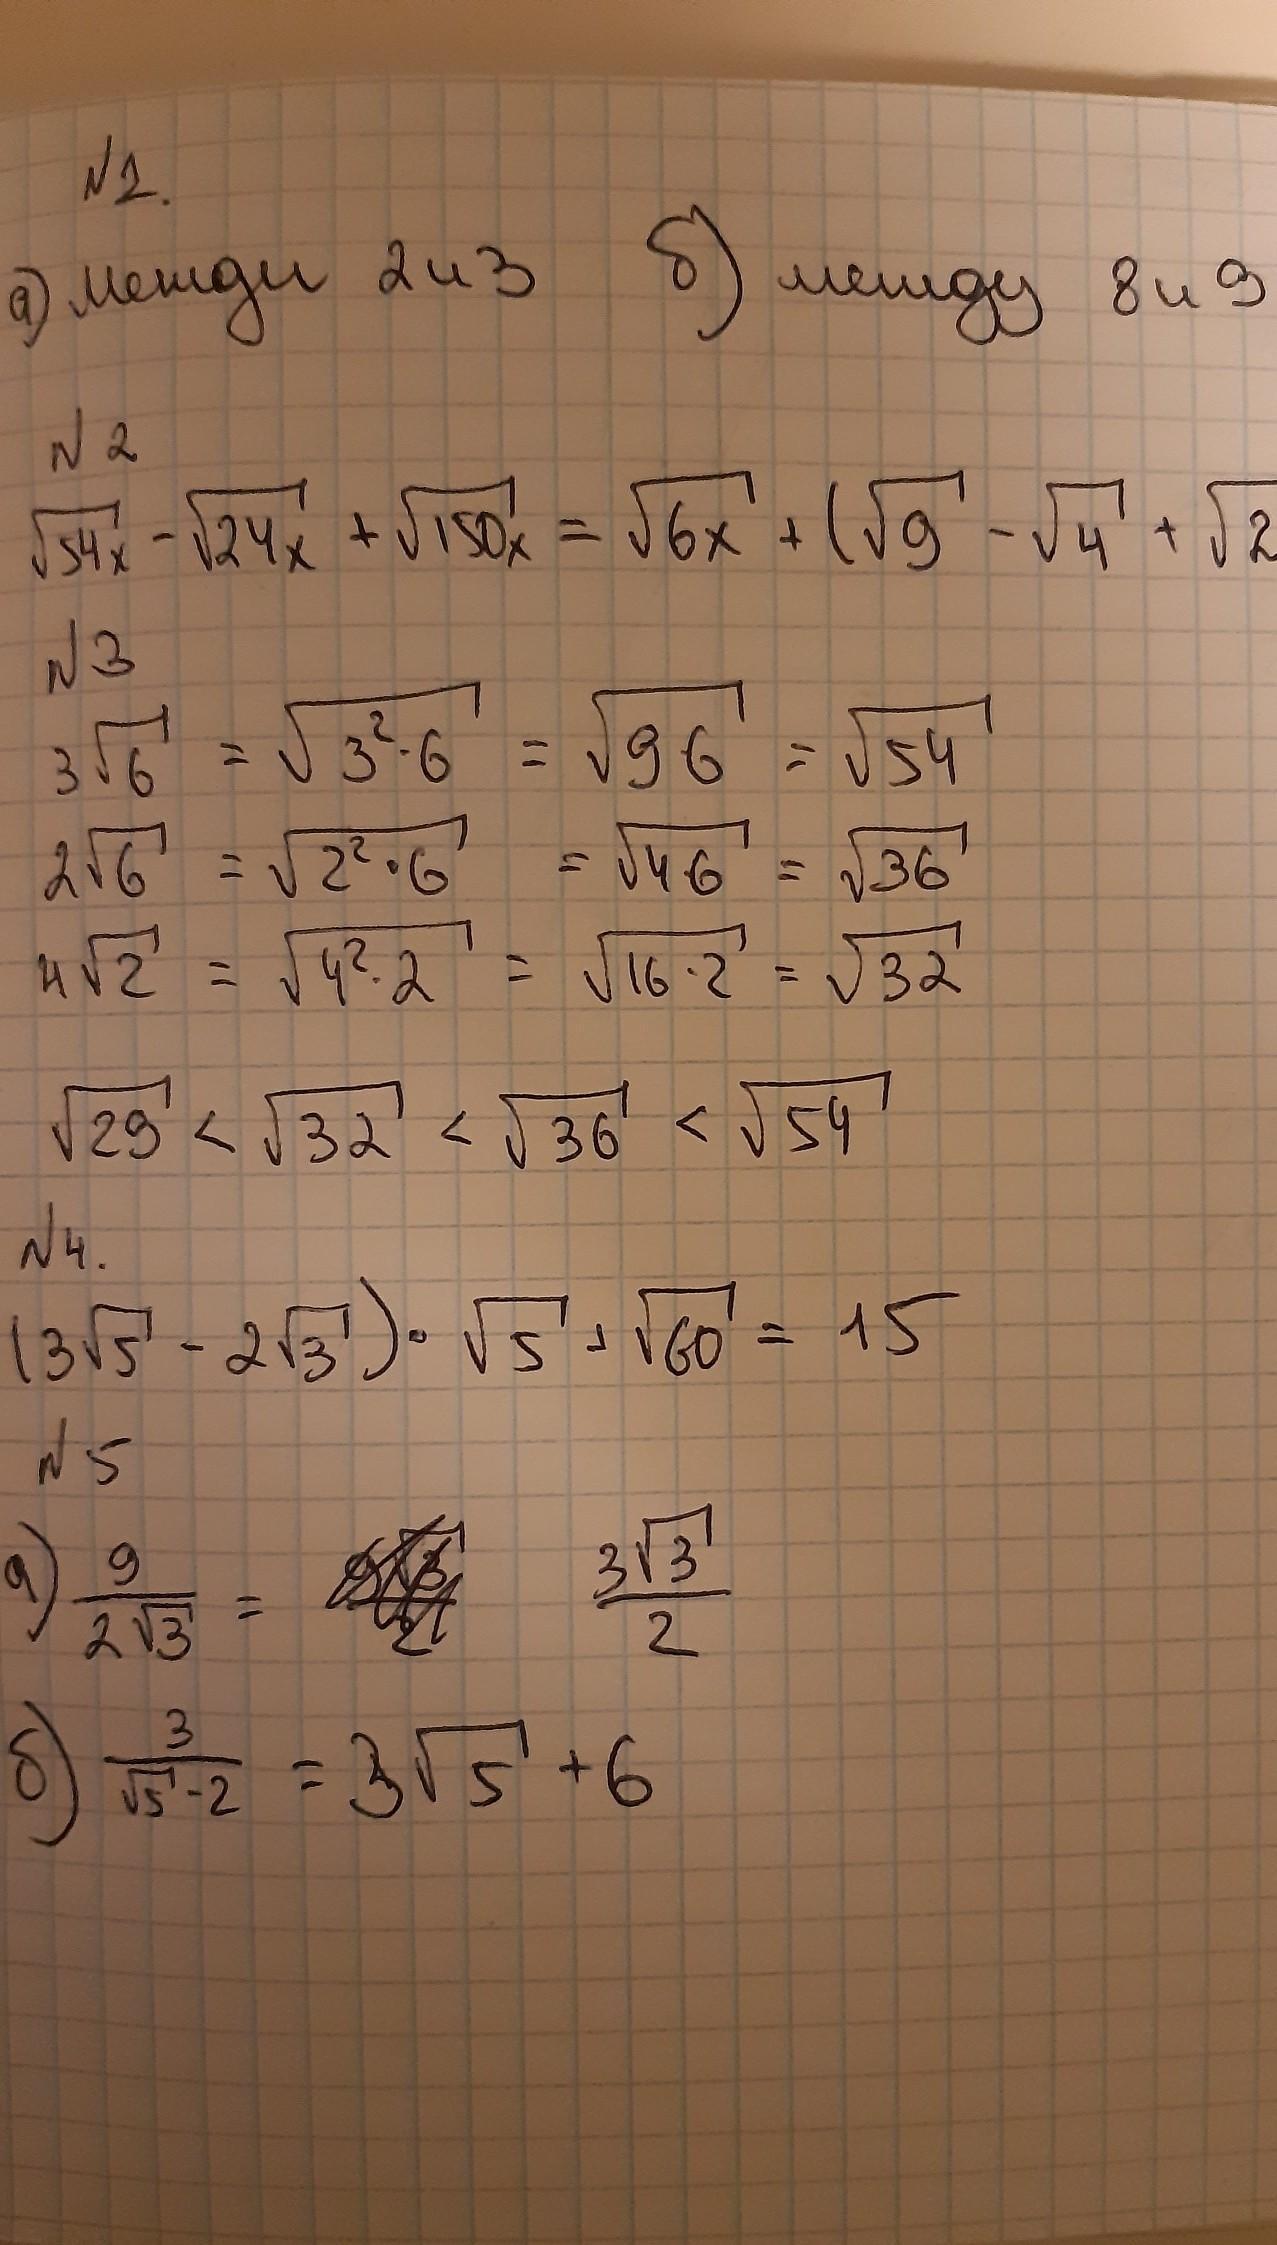 №1.
а) Между 2 и 3 б) между 8 и 9
№2
√54x - √24x + √150x = √6x + (√9 - √4 + √2
№3
3√6 = √3²·6 = √9·6 = √54
2√6 = √2²·6 = √4·6 = √36
4√2 = √4²·2 = √16·2 = √32
√29 < √32 < √36 < √54
№4.
(3√5 - 2√3)·√5 + √60 = 15
№5
а) 9/2√3 = 3√3/2
б) 3/√5-2 = 3√5 + 6